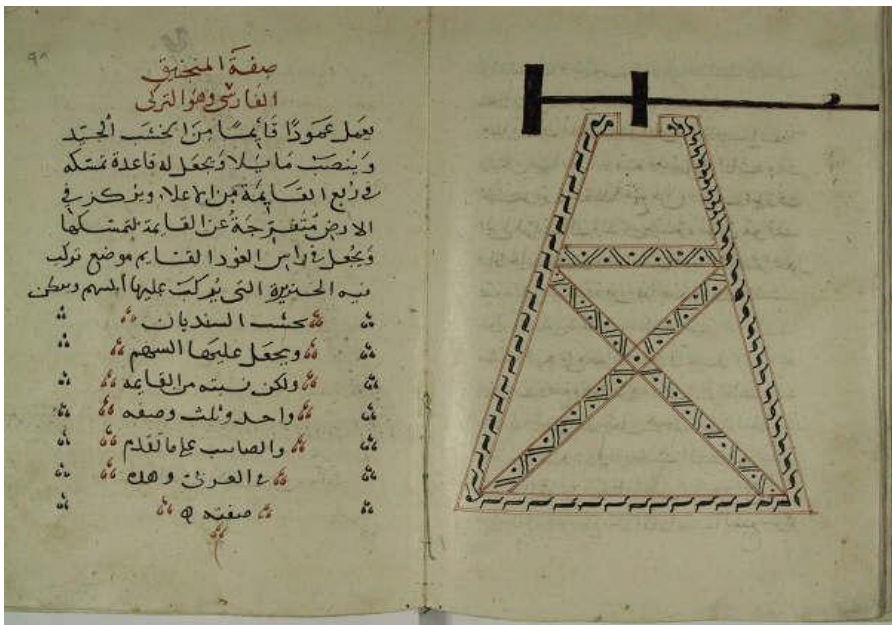 ٩٨
صفة المنجنيق
الفارسي وهو التركى
يعمل عمودًا قايمًا من الخشب الجيد
وينصب مايلا ويجعل له قاعدة تمسكه
فى ربع القايمة من الاعلا ويركز فى
الارض متفرجة عن القايمة لتمسكها
ويجعل فى راس العود القايم موضع تركب
فيه الخنزيرة التى يركب عليها السهم
خشب السنديان
ويجعل عليها السهم
ولكن نسبته من القايمه
واحد وثلث وصفه
على ما تقدم
فى العربى وهذه
صفته